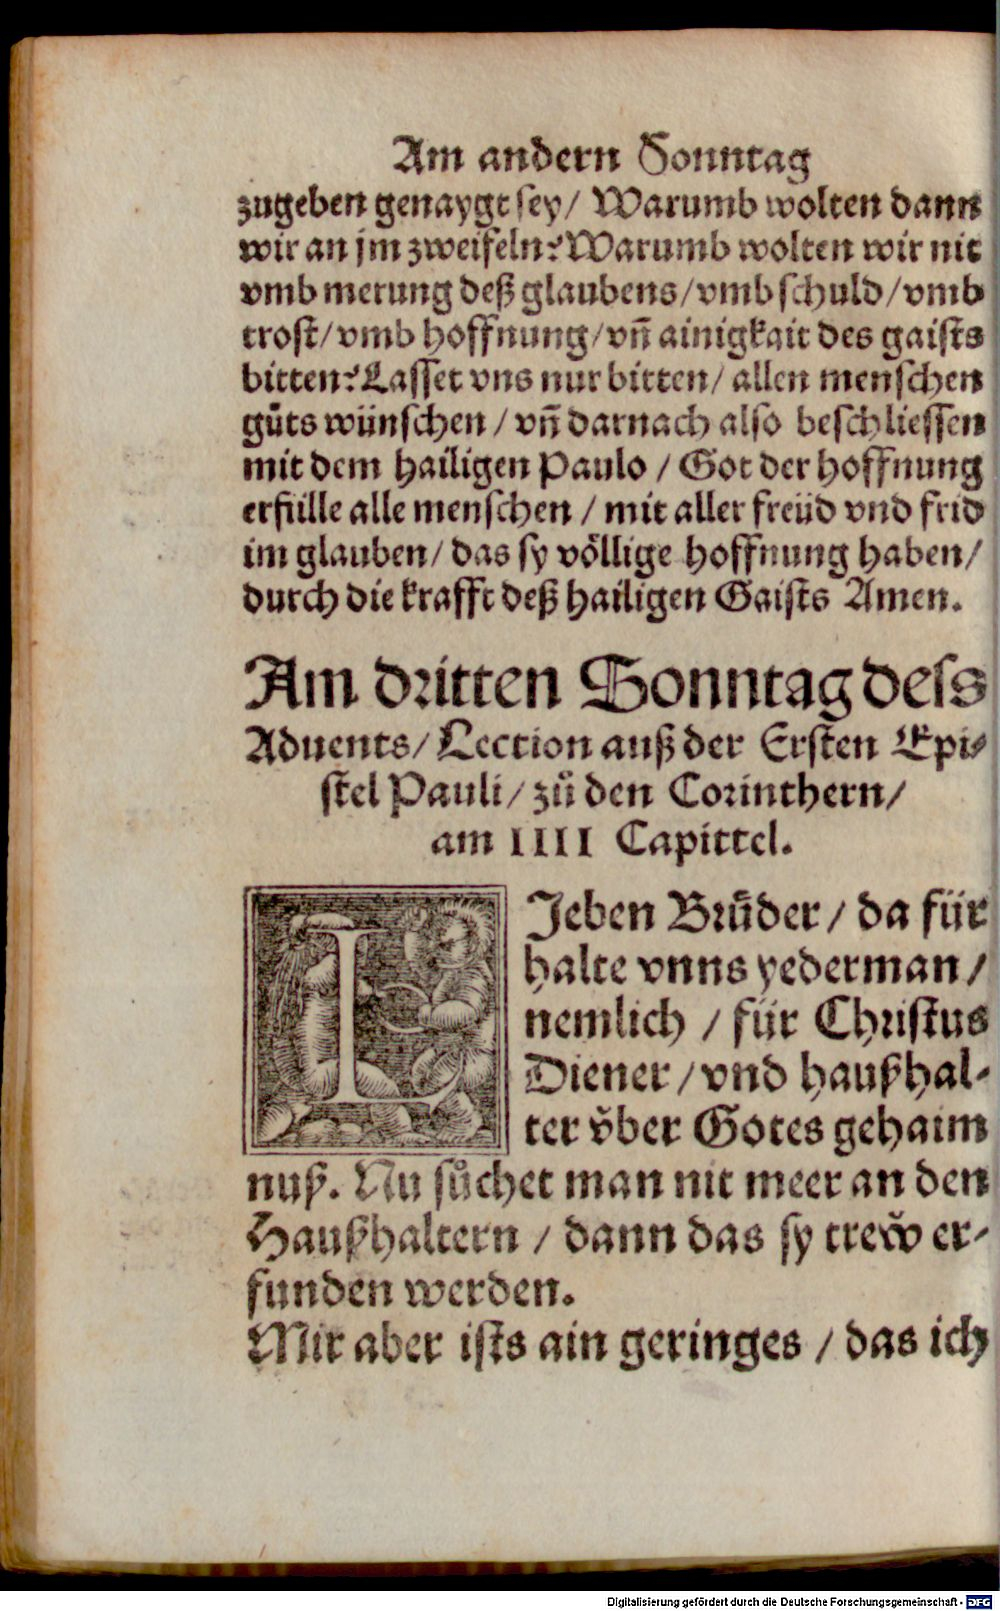 Am andern Sonntag
zugeben genaygt sey/ Warumb wolten dann
wir an jm zweifeln? Warumb wolten wir nit
vmb merung deß glaubens/vmb schuld/vmb
trost/vmb hoffnung/vñ ainigkait des gaists
bitten? Lasset vns nur bitten/ allen menschen
gůts wünschen / vñ darnach also beschliessen
mit dem hailigen Paulo / Got der hoffnung
erfülle alle menschen / mit aller freüd vnd frid
im glauben/ das sy völlige hoffnung haben/
durch die krafft deß hailigen Gaists Amen.
Am dritten Sonntag dess
Aduents/ Lection auß der Ersten Epi-
stel Pauli/ zů den Corinthern/
am IIII Capittel.
LJeben Brůder / da für
halte vnns yederman /
nemlich / für Christus
Diener / vnd haußhal-
ter vͤber Gotes gehaim
nuß. Nu sůchet man nit meer an den
Haußhaltern / dann das sy trew er-
funden werden.
Mir aber ists ain geringes / das ich
Digitalisierung gefördert durch die Deutsche Forschungsgemeinschaft - DFG